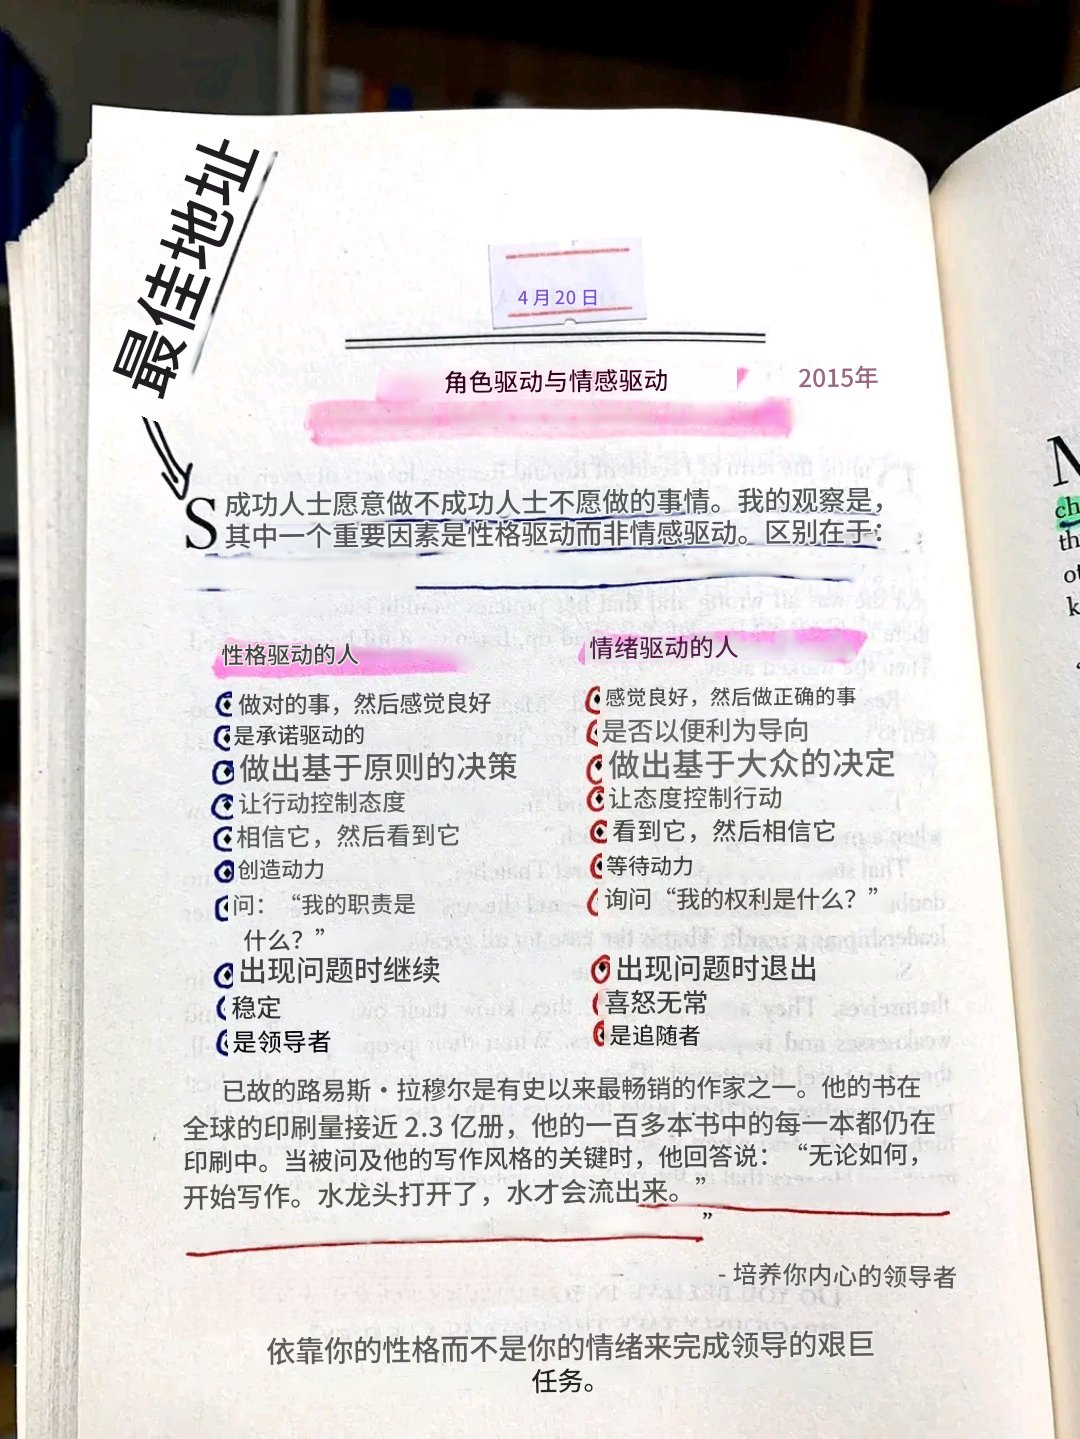 最佳地址
4 月 20 日
角色驱动与情感驱动
2015年
S 成功人士愿意做不成功人士不愿做的事情。我的观察是，
其中一个重要因素是性格驱动而非情感驱动。区别在于：
性格驱动的人
做对的事，然后感觉良好
是承诺驱动的
做出基于原则的决策
让行动控制态度
相信它，然后看到它
创造动力
问：“我的职责是
什么？”
出现问题时继续
稳定
是领导者
情绪驱动的人
感觉良好，然后做正确的事
是否以便利为导向
做出基于大众的决定
让态度控制行动
看到它，然后相信它
等待动力
询问“我的权利是什么？”
出现问题时退出
喜怒无常
是追随者
已故的路易斯·拉穆尔是有史以来最畅销的作家之一。他的书在
全球的印刷量接近 2.3 亿册，他的一百多本书中的每一本都仍在
印刷中。当被问及他的写作风格的关键时，他回答说：“无论如何，
开始写作。水龙头打开了，水才会流出来。”
”
- 培养你内心的领导者
依靠你的性格而不是你的情绪来完成领导的艰巨
任务。
ch
th
k